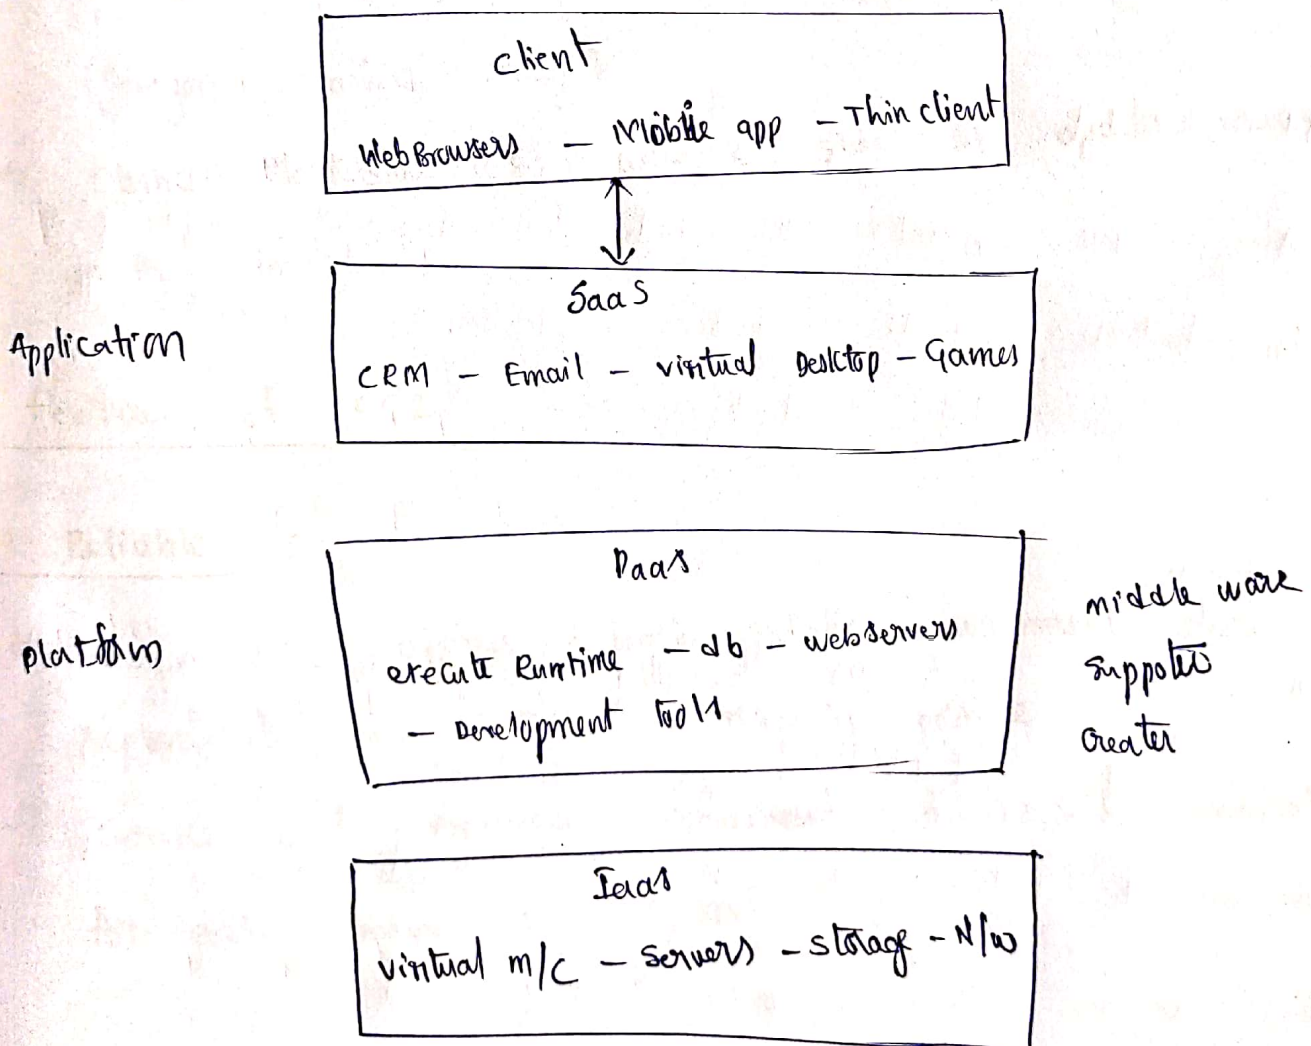 Client
Web Browsers - Mobile app - Thin client
SaaS
Application
CRM - Email - virtual Desktop - Games
PaaS
platform
execute Runtime - db - webservers
- Development tools
middle ware
suppoter
creater
IaaS
virtual m/c - servers - storage - N/w